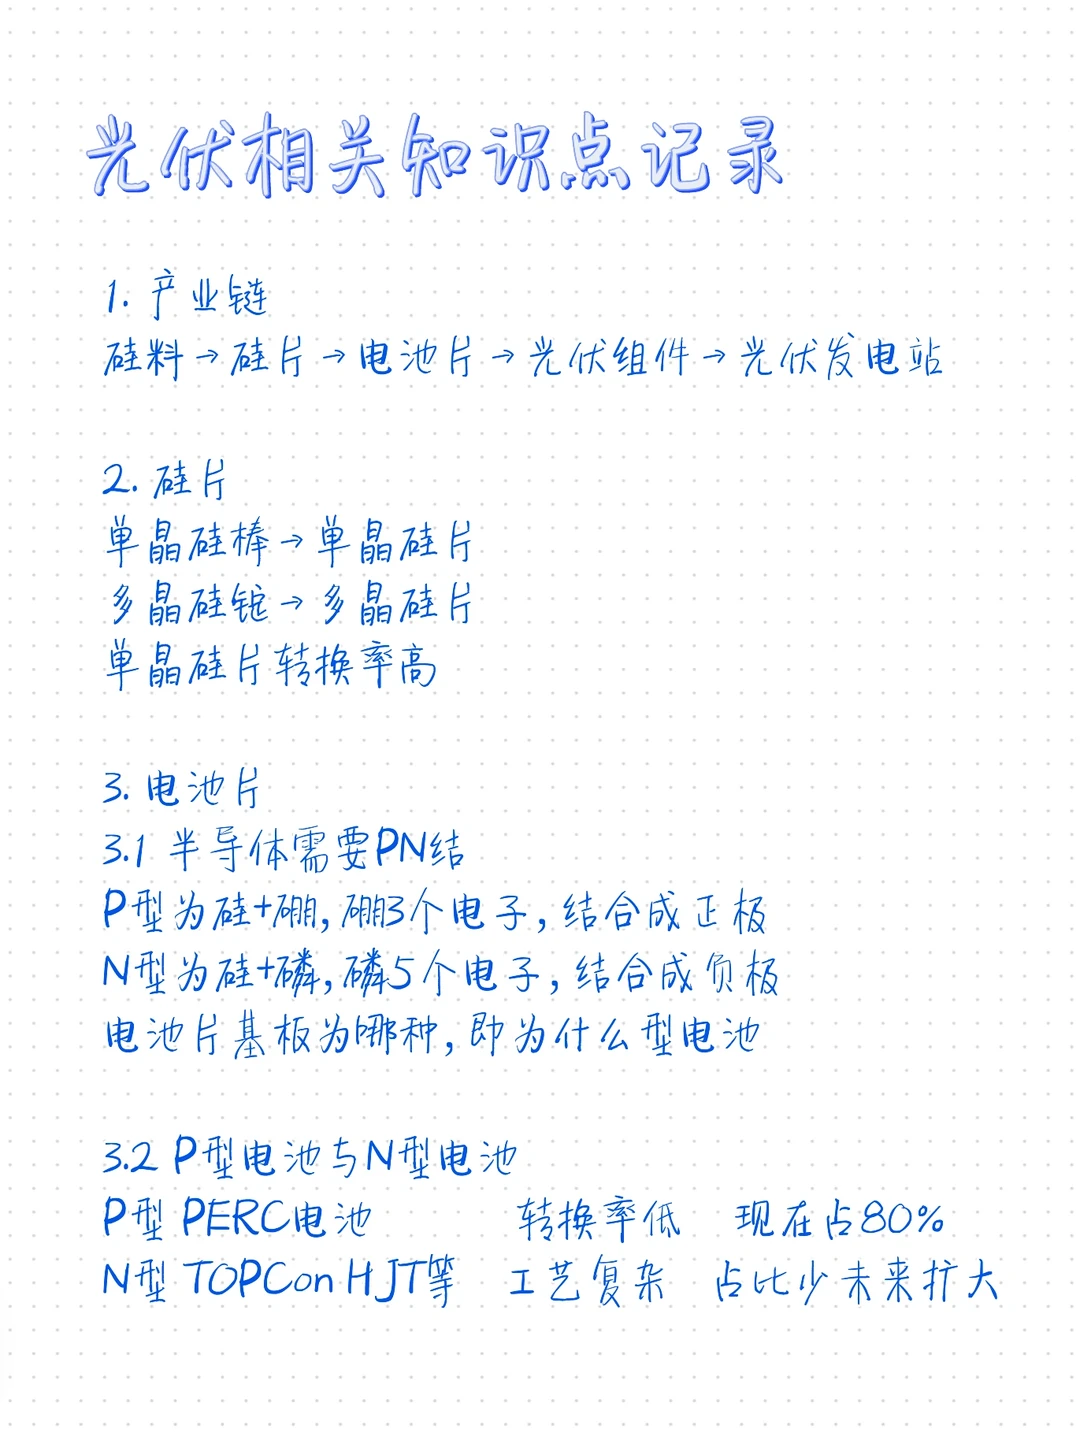 光伏相关知识点记录
1. 产业链
硅料→硅片→电池片→光伏组件→光伏发电站
2. 硅片
单晶硅棒→单晶硅片
多晶硅锭→多晶硅片
单晶硅片转换率高
3. 电池片
3.1 半导体需要PN结
P型为硅+硼,硼3个电子,结合成正极
N型为硅+磷,磷5个电子,结合成负极
电池片基板为哪种,即为什么型电池
3.2 P型电池与N型电池
P型 PERC电池 转换率低 现在占80%
N型 TOPCon HJT等 工艺复杂 占比少未来扩大